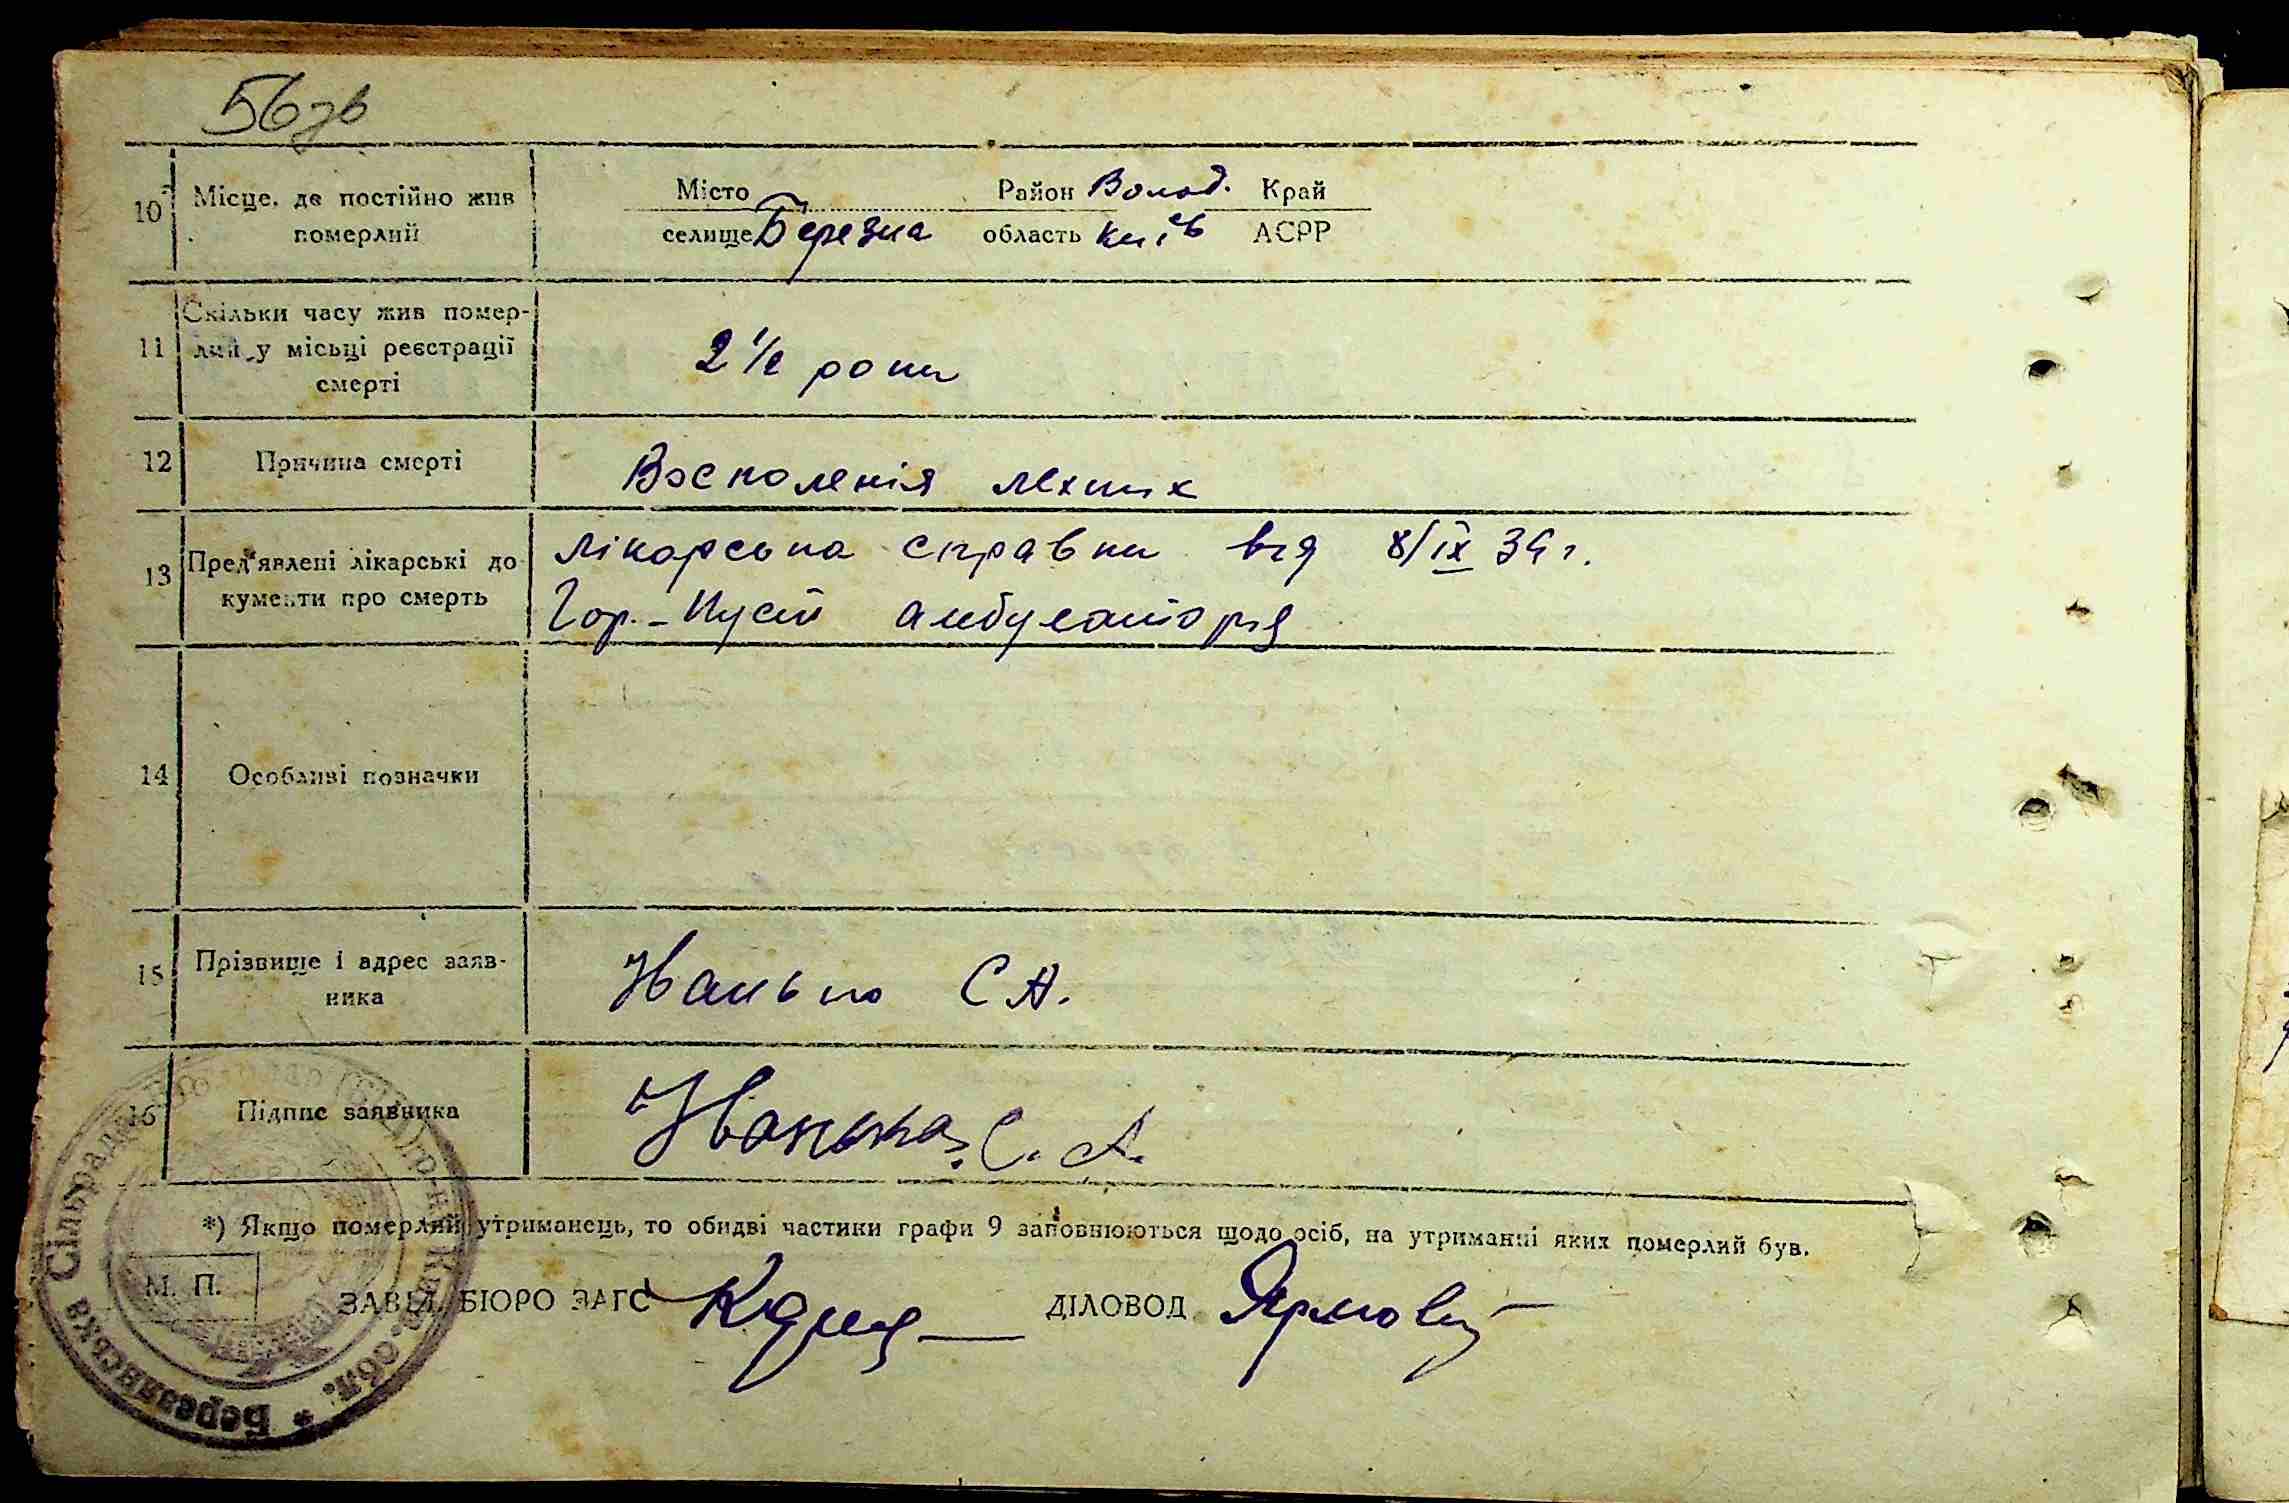 56 зв
10 Місце, де постійно жив померлий
Місто Район Волод. Край
селище Березна область Київ АСРР
11 Скільки часу жив помер-
лий у місьці реєстрації
смерті
2 1/2 роки
12 Причина смерті
Восполенія лехких
13 Пред'явлені лікарські до-
кументи про смерть
лікарська справка від 8/IX 34 г.
Гор.-Пуст амбулаторія
14 Особливі позначки
15 Прізвище і адрес заяв-
ника
Иванько С А.
16 Підпис заявника
Иванько С. А.
*) Якщо померлий утриманець, то обидві частини графи 9 заповнюються щодо осіб, на утриманні яких померлий був.
М. П.
ЗАВІД. БЮРО ЗАГС ДІЛОВОД
Березянська Сільрада р-ну Київ. обл. *